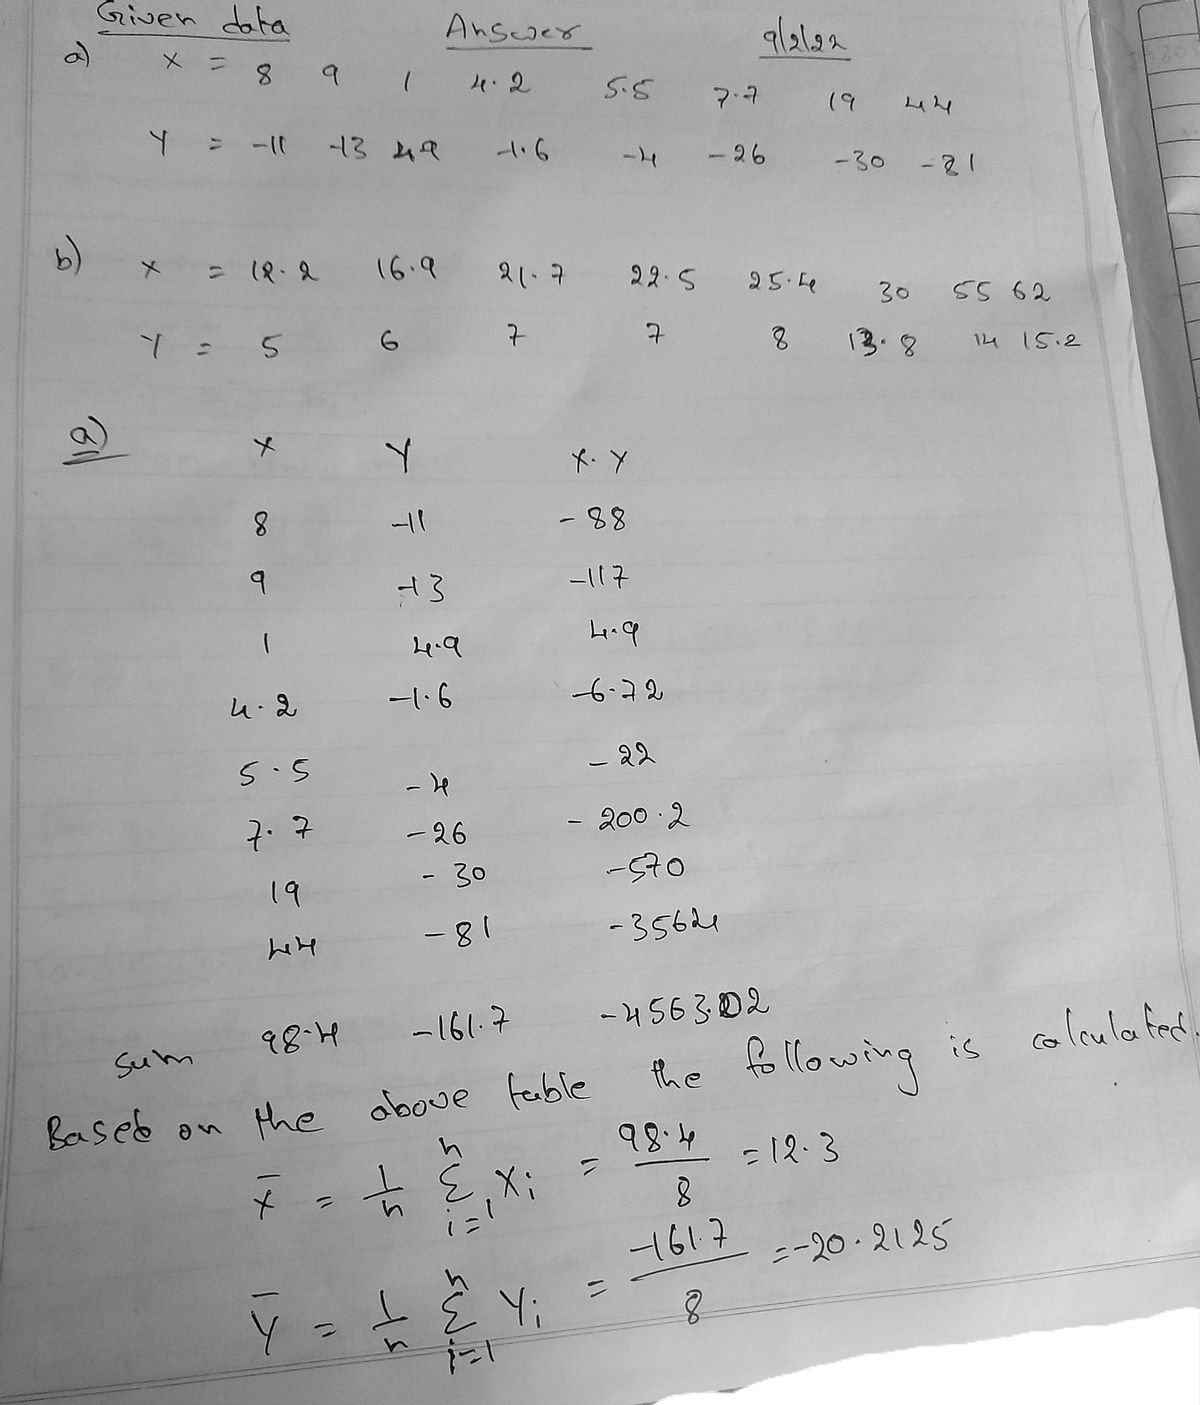 Given data Answer 9/2/22
a) X = 8 9 1 4.2 5.5 7.7 19 44
Y = -11 -13 4.9 -1.6 -4 -26 -30 -81
b) X = 12.2 16.9 21.7 22.5 25.4 30 55 62
Y = 5 6 7 7 8 13.8 14 15.2
a) X Y X.Y
8 -11 -88
9 -13 -117
1 4.9 4.9
4.2 -1.6 -6.72
5.5 -4 -22
7.7 -26 -200.2
19 -30 -570
44 -81 -3564
Sum 98.4 -161.7 -4563.02
Based on the above table the following is calculated.
X̄ = 1/n Σ_{i=1}^{n} Xi = 98.4/8 = 12.3
Ȳ = 1/n Σ_{i=1}^{n} Yi = -161.7/8 = -20.2125